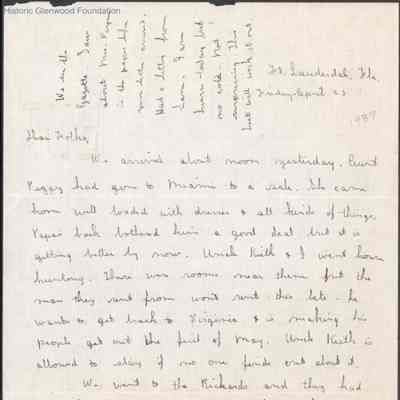 Historic Glenwood Foundation
We in the
Gazette I saw
about Mrs.
in the paper
Had a letter from
Sam. I am
but
no cold. Not
This
but will work it out.
Ft. Lauderdale, Fla.
Friday April 23
Dear Folks,
We arrived about noon yesterday. Aunt
Peggy had gone to Miami to a sale. She came
home well loaded with dresses & all kinds of things.
back bothered him a good deal but it is
getting better by now. Uncle Keith & I went house
hunting. There was rooms near them but the
man they rent from won't rent this late. He
wants to get back to Virginia & is making his
people get out the first of May. Uncle Keith is
allowed to stay if no one finds out about it.
We went to the Richards and they had